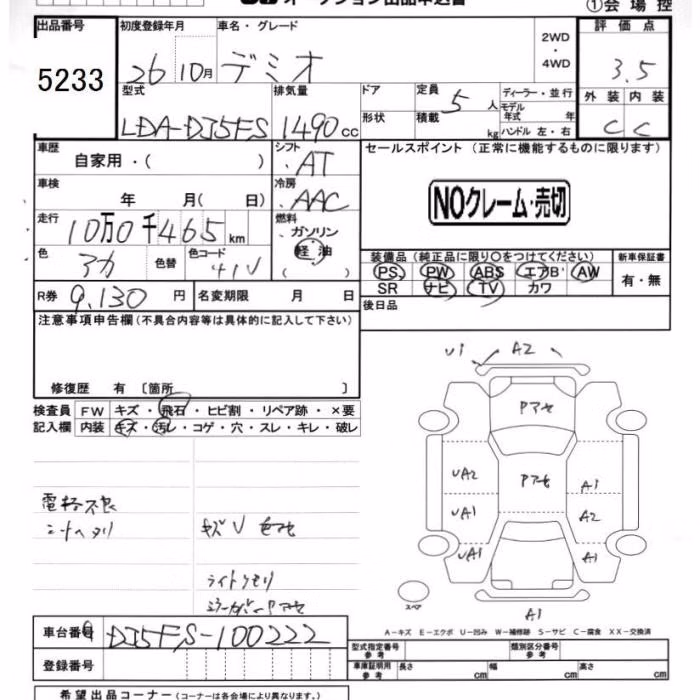 オークション出品申込書
①会場控
出品番号 初度登録年月 車名・グレード 2WD ・ 4WD 評価点
5233 26 10月 デミオ 3.5
型式 排気量 ドア 定員 5 人 ディーラー・並行 外装 内装
LDA-DJ5FS 1490cc 形状 積載 kg モデル年式 年 ハンドル 左・右 C C
車歴 自家用・( ) シフト AT セールスポイント (正常に機能するものに限ります)
車検 年 月( 日) 冷房 AAC NOクレーム・売切
走行 10万0千465km 燃料 ガソリン・軽油 ( )
色 アカ 色替 色コード 41V 装備品 (純正品に限り○をつけてください) 新車保証書
PS PW ABS エアB AW 有・無
SR ナビ TV カワ
R券 9,130円 名変期限 月 日 後日品
注意事項申告欄(不具合内容等は具体的に記入して下さい)
修復歴 有 〔箇所 〕
検査員 FW キズ・飛石・ヒビ割・リペア跡・×要
記入欄 内装 キズ・汚レ・コゲ・穴・スレ・キレ・破レ
U1 A2
Pアセ
UA2 Pアセ A1
UA1 A2
UA1 A1
スペア A1
シートヘタリ キズU 色アセ
ライトクモリ
A-キズ E-エクボ U-凹み W-補修跡 S-サビ C-腐食 XX-交換済
車台番号 DJ5FS-100222 型式指定番号 参考 類別区分番号 参考
登録番号 車庫証明用 参考 長さ cm 幅 cm 高さ cm
希望出品コーナー (コーナーは各会場により異なります。)